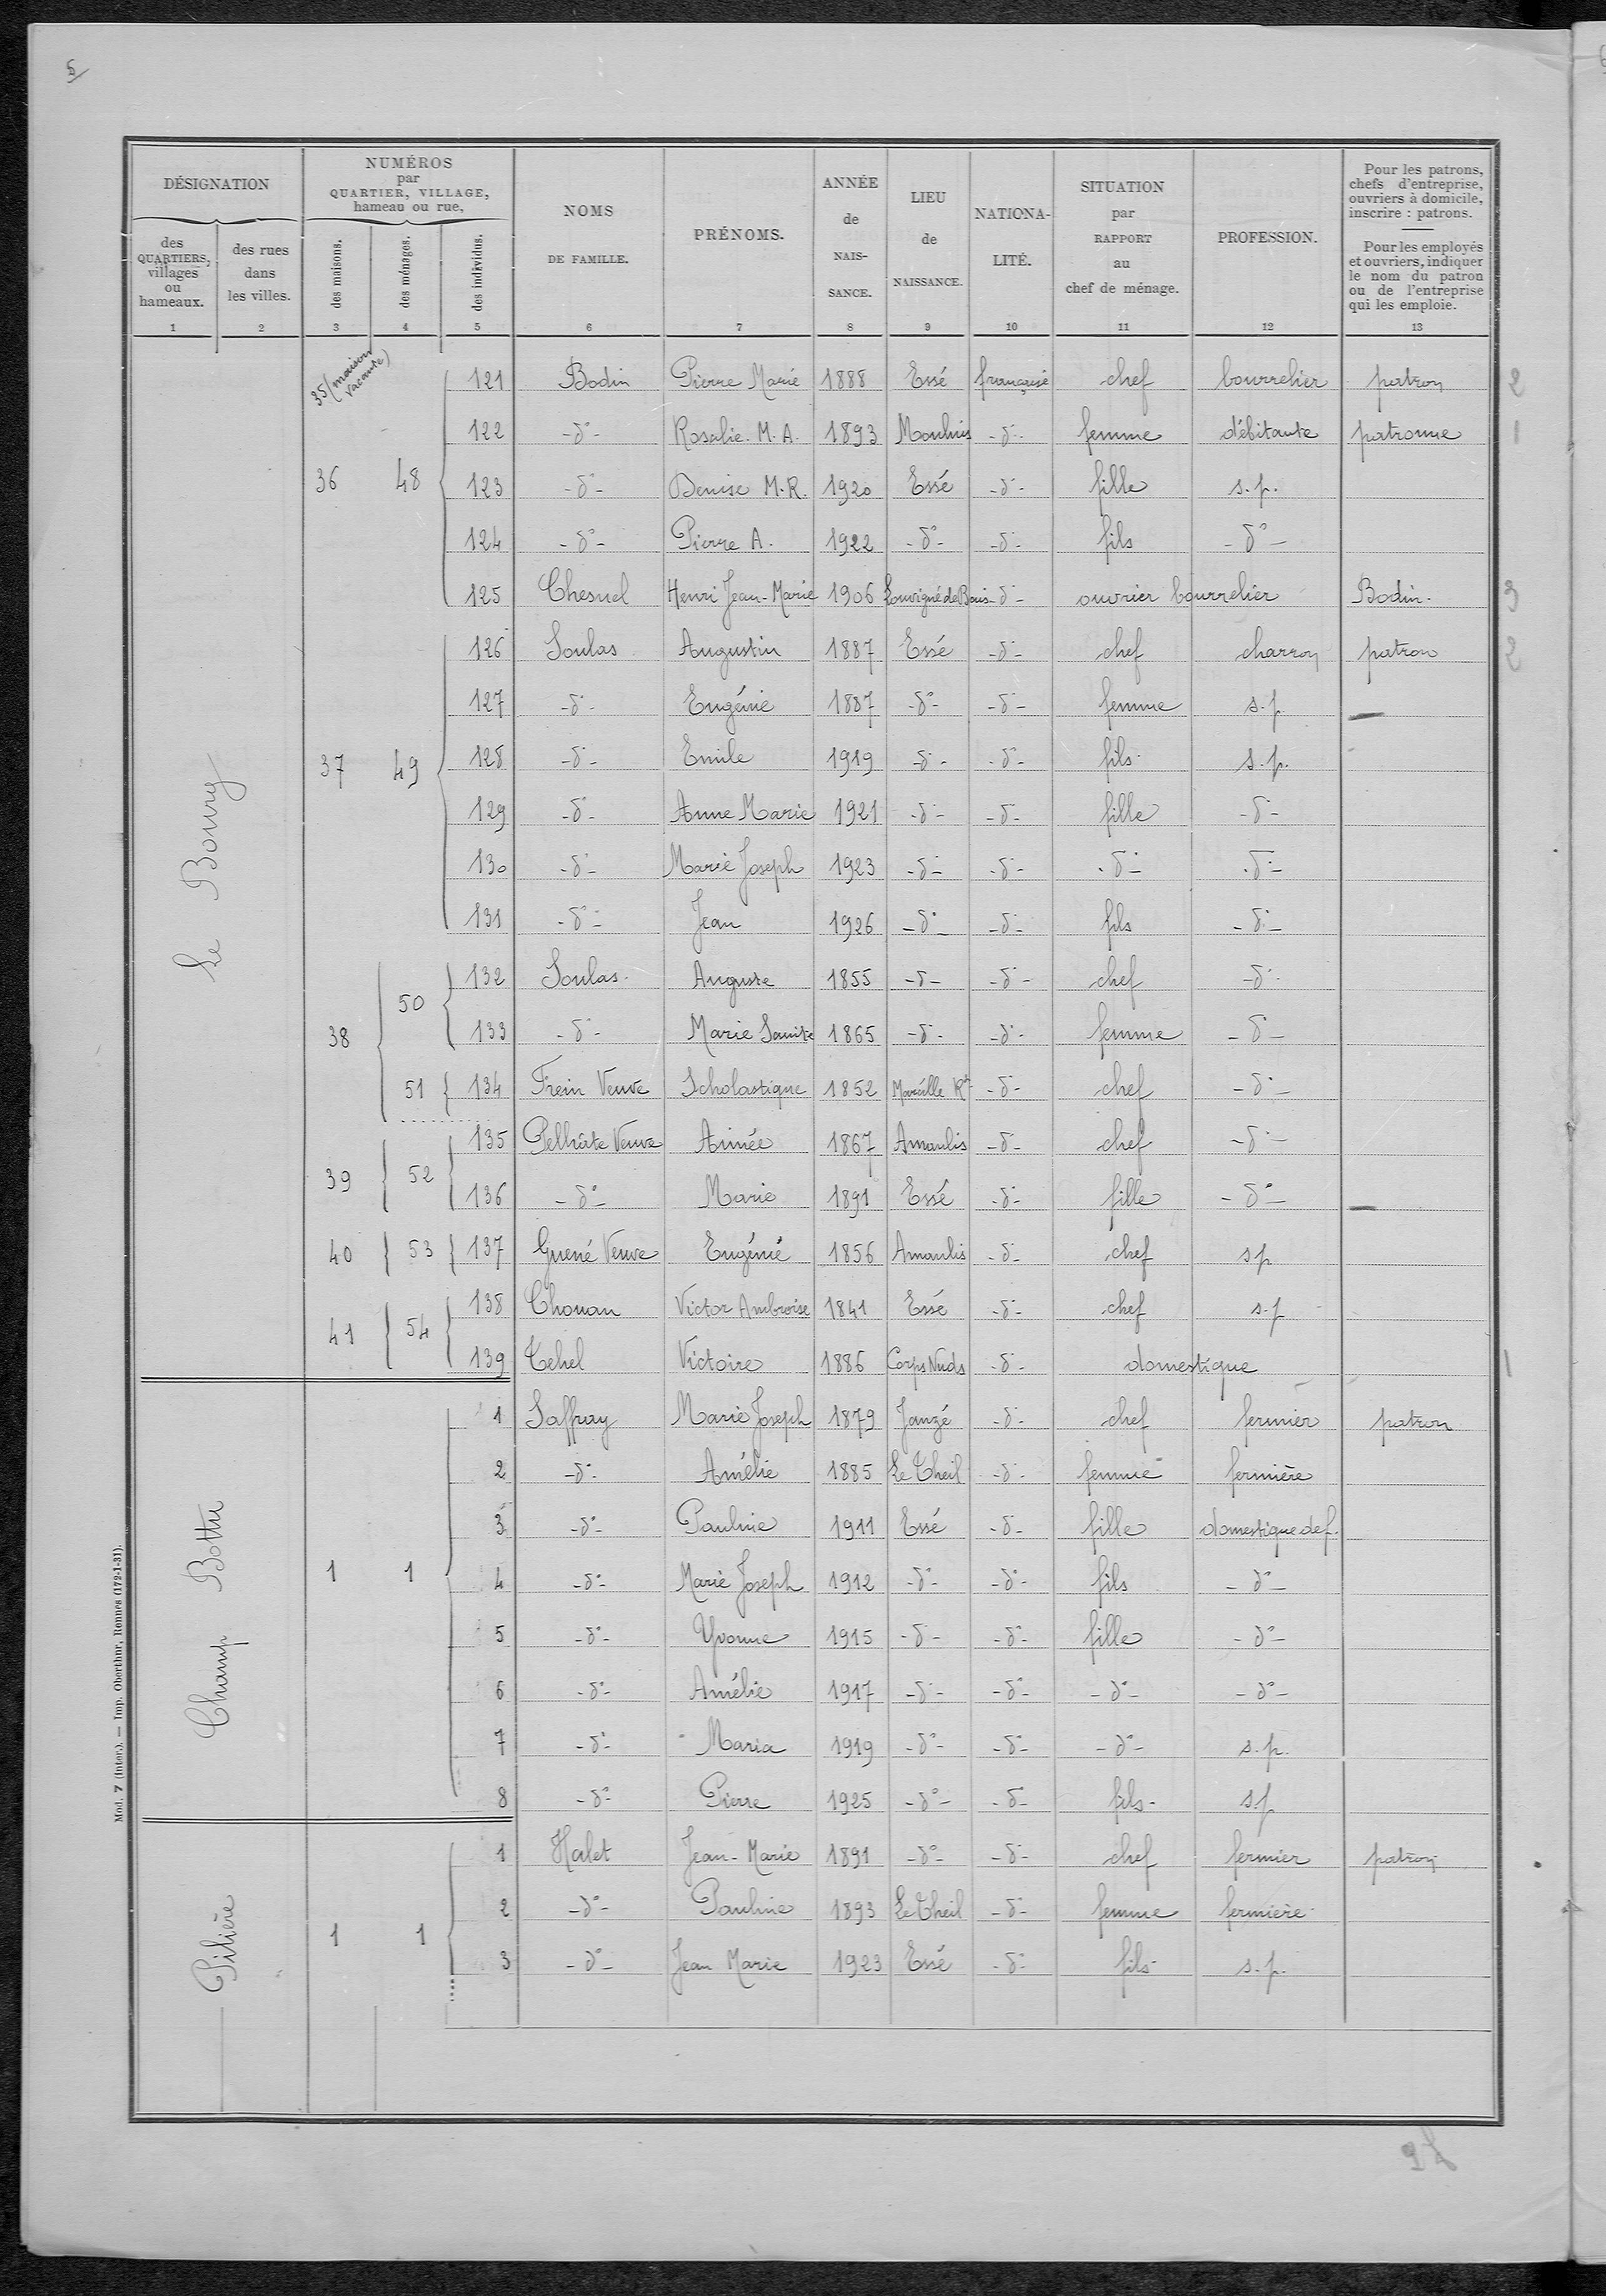 5
DÉSIGNATION
NUMÉROS
par
QUARTIER, VILLAGE,
hameau ou rue,
NOMS
DE FAMILLE.
PRÉNOMS.
ANNÉE
de
NAIS-
SANCE.
LIEU
de
NAISSANCE.
NATIONA-
LITÉ.
SITUATION
par
RAPPORT
au
chef de ménage.
PROFESSION.
Pour les patrons,
chefs d'entreprise,
ouvriers à domicile,
inscrire : patrons.
Pour les employés
et ouvriers, indiquer
le nom du patron
ou de l'entreprise
qui les emploie.
des
QUARTIERS,
villages
ou
hameaux.
des rues
dans
les villes.
des maisons.
des ménages.
des individus.
1 2 3 4 5 6 7 8 9 10 11 12 13
Le Bourg
35 (maison
vacante)
121 Bodin Pierre Marie 1888 Essé française chef bourrelier patron 2
122 -d°- Rosalie. M. A. 1893 Moulins -d°- femme débitante patronne 1
36 48 123 -d°- Denise M.R. 1920 Essé -d°- fille s.p.
124 -d°- Pierre A. 1922 -d°- -d°- fils -d°-
125 Chesnel Henri Jean-Marie 1906 Louvigné de Bais -d°- ouvrier bourrelier Bodin. 3
126 Soulas Augustin 1887 Essé -d°- chef charron patron 2
127 -d°- Eugénie 1887 -d°- -d°- femme s.p.
37 49 128 -d°- Emile 1919 -d°- -d°- fils s.p.
129 -d°- Anne Marie 1921 -d°- -d°- fille -d°-
130 -d°- Marie Joseph 1923 -d°- -d°- -d°- -d°-
131 -d°- Jean 1926 -d°- -d°- fils -d°-
50 132 Soulas Auguste 1855 -d°- -d°- chef -d°-
38 133 -d°- Marie Sainte 1865 -d°- -d°- femme -d°-
51 134 Frein Veuve Scholastique 1852 Marcillé Rt -d°- chef -d°-
135 Pelhâte Veuve Aimée 1867 Amanlis -d°- chef -d°-
39 52 136 -d°- Marie 1891 Essé -d°- fille -d°-
40 53 137 Guené Veuve Eugénie 1856 Amanlis -d°- chef sp
138 Chouan Victor Ambroise 1841 Essé -d°- chef s.p
41 54 139 Tehel Victoire 1886 Corps Nuds -d°- domestique 1
Champ Bottu
1 Saffray Marie Joseph 1879 Janzé -d°- chef fermier patron
2 -d°- Amélie 1885 Le Theil -d°- femme fermière
3 -d°- Pauline 1911 Essé -d°- fille domestique de f.
1 1 4 -d°- Marie Joseph 1912 -d°- -d°- fils -d°-
5 -d°- Yvonne 1915 -d°- -d°- fille -d°-
6 -d°- Amélie 1917 -d°- -d°- -d°- -d°-
7 -d°- Maria 1919 -d°- -d°- -d°- s.p.
8 -d°- Pierre 1925 -d°- -d°- fils s.p
Pilière
1 Halet Jean-Marie 1891 -d°- -d°- chef fermier patron
1 1 2 -d°- Pauline 1893 Le Theil -d°- femme fermière
3 -d°- Jean Marie 1923 Essé -d°- fils s.p.
Mod. 7 (Inter.). — Imp. Oberthur, Rennes (172-1-31).